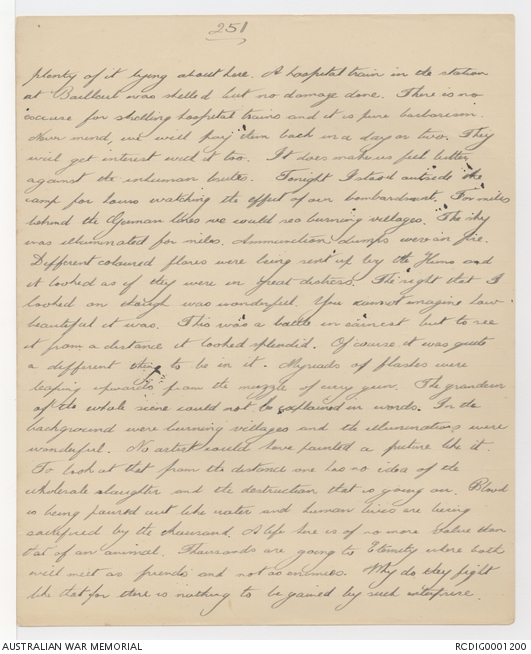 251
plenty of it lying about here. A hospital train in the station
at Bailleul was shelled but no damage done. There is no
excuse for shelling hospital trains and it is pure barbarism.
Never mind, we will pay 'dem back in a day or two. They
will get interest wid it too. It does make us feel better
against the inhuman brutes. Tonight I stood outside the
camp for hours watching the effect of our bombardment. For miles
behind the German lines we could see burning villages. The sky
was illuminated for miles. Ammunition dumps were on fire.
Different coloured flares were being sent up by the Huns and
it looked as if they were in great distress. The sight that I
looked on though was wonderful. You cannot imagine how
beautiful it was. This was a battle in earnest but to see
it from a distance it looked splendid. Of course it was quite
a different thing to be in it. Myriads of flashes were
leaping upwards from the muzzle of every gun. The grandeur
of the whole scene could not be explained in words. In the
background were burning villages and the illuminations were
wonderful. No artist could have painted a picture like it.
To look at that from the distance one has no idea of the
wholesale slaughter and the destruction that is going on. Blood
is being poured out like water and human lives are being
sacrificed by the thousand. A life here is of no more value than
dat of an animal. Thousands are going to Eternity where both
will meet as friends and not as enemies. Why do they fight
like dat for there is nothing to be gained by such enterprise.
AUSTRALIAN WAR MEMORIAL
RCDIG0001200